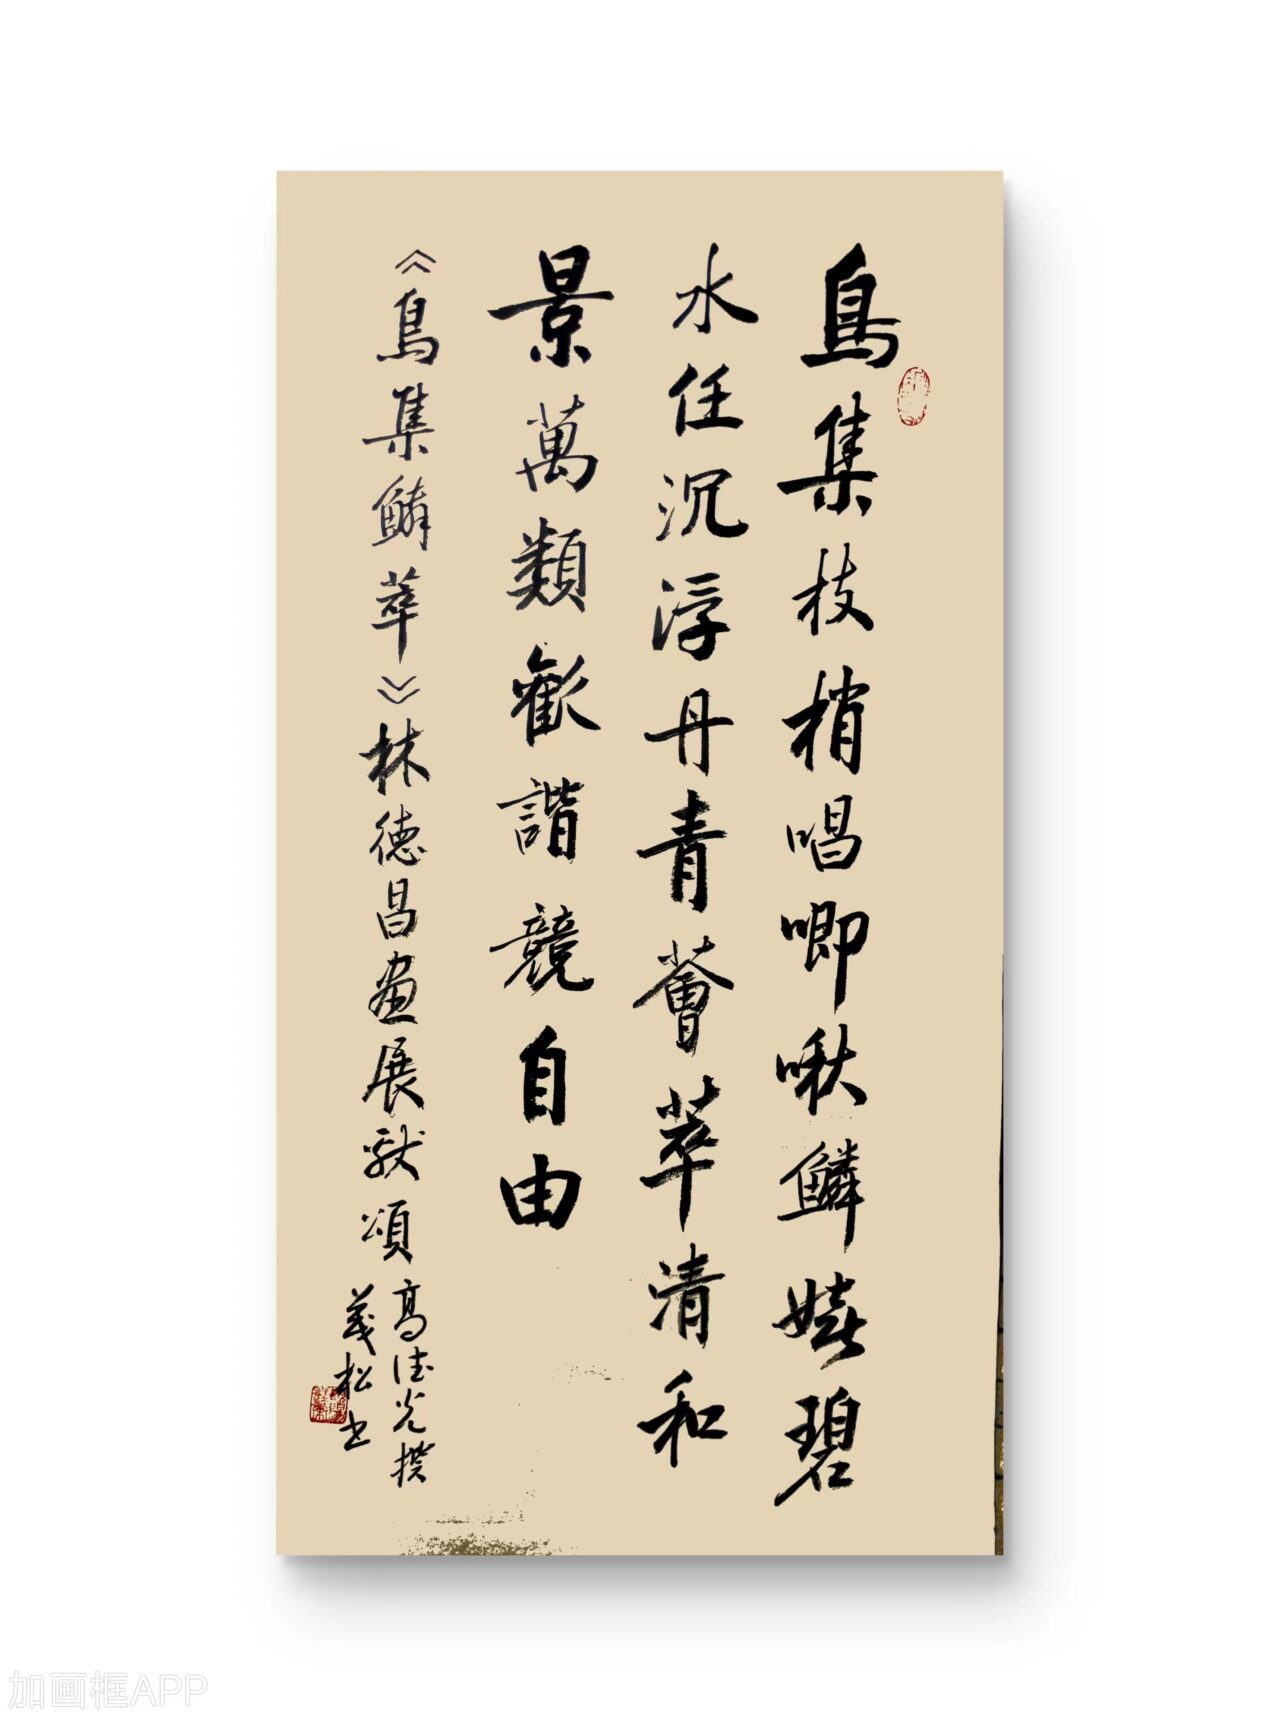 鳥集枝梢唱唧啾鱗嬉碧
水任沉浮丹青薈萃清和
景萬類歡諧競自由
《鳥集鱗萃》林德昌画展献頌
高德光撰
義松书
加画框APP